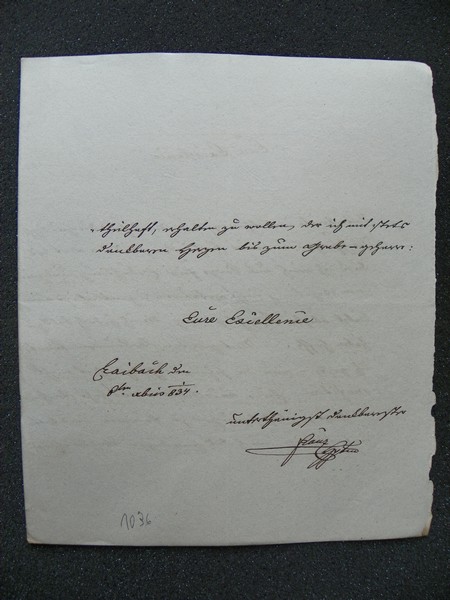 theilhaft, erhalten zu wollen, der ich mit stets
dankbarem Herzen bis zum Grabe geharre:
Eure Excellenz
Laibach den
8ten xbris 834.
unterthänigst dankbarster
Franz
1036